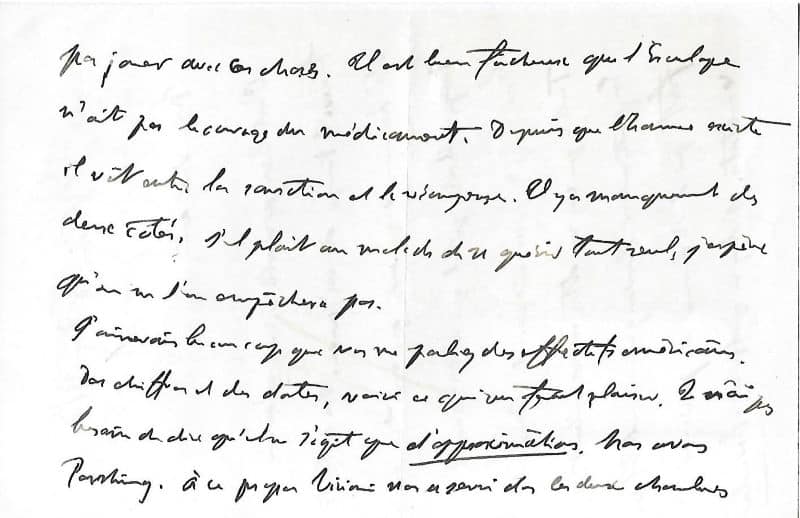 pas jouer avec les choses. Il est bien fâcheux que l'Esculape
n'ait pas le courage du médicament. Depuis que l'homme existe
il vit entre la sanction et la récompense. Il y a manquement des
deux côtés. S'il plaît au malade de se guérir tout seul, j'espère
qu'on ne l'en empêchera pas.
J'aimerais beaucoup que vous me parliez des effectifs américains.
Des chiffres et des dates, voici ce qui me ferait plaisir. Je n'ai pas
besoin de dire qu'il ne s'agit que d'approximations. Nous avons
Pershing. à ce propos Viviani nous a servi dans les deux chambres